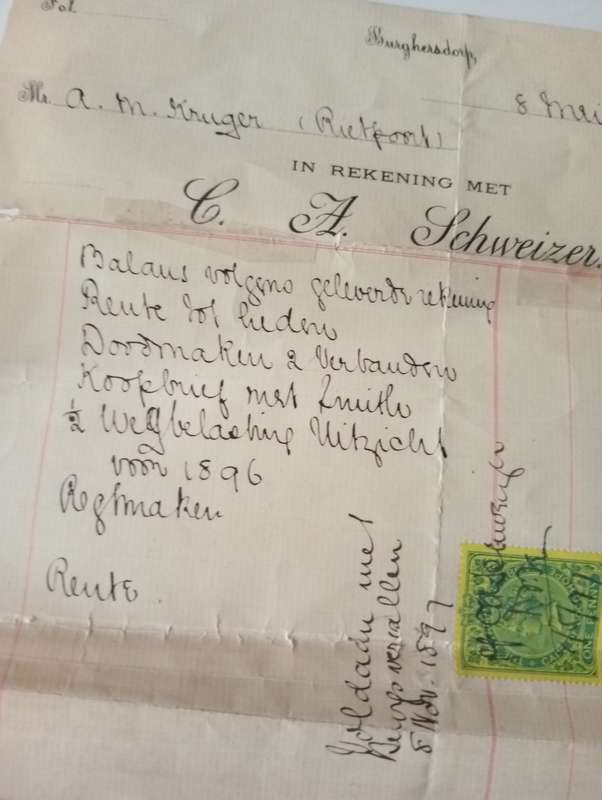 Fol.
Burghersdorp,
8 Mei
Mr. A. M. Kruger (Rietpoort)
IN REKENING MET
C. A. Schweizer.
Balans volgens geleverde rekening
Rente tot heden
Doodmaken 2 Verbanden
Koopbrief met Smith
½ Wegbelasting Uitzicht
voor 1896
Regmaken
Rente
Voldaan met
Bewys vervallen
8 Nov. 1897
ONE PENNY